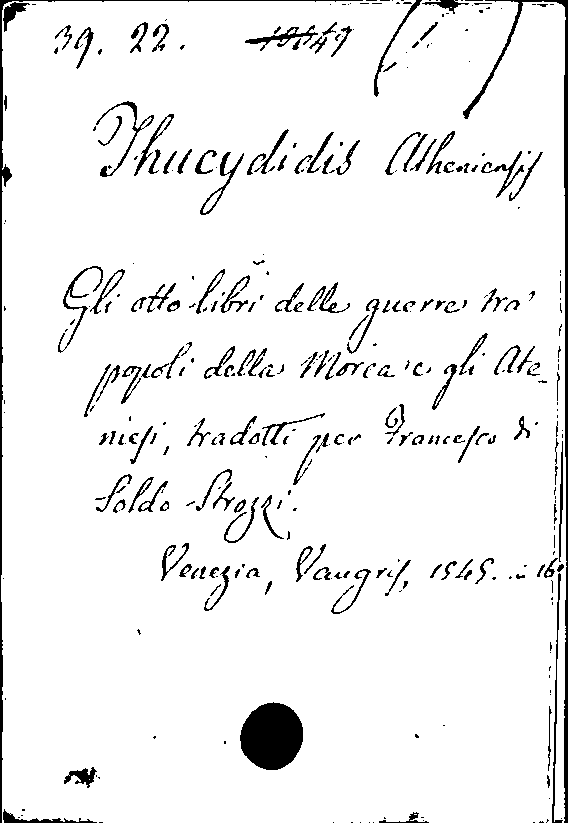 39. 22. 10849 (1.)
Thucydidis Atheniensis
Gli otto libri delle guerre tra'
popoli della Morea e gli Ate-
niesi, tradotti per Francesco di
Soldo Strozzi.
Venezia, Vaugris, 1545. in 16º